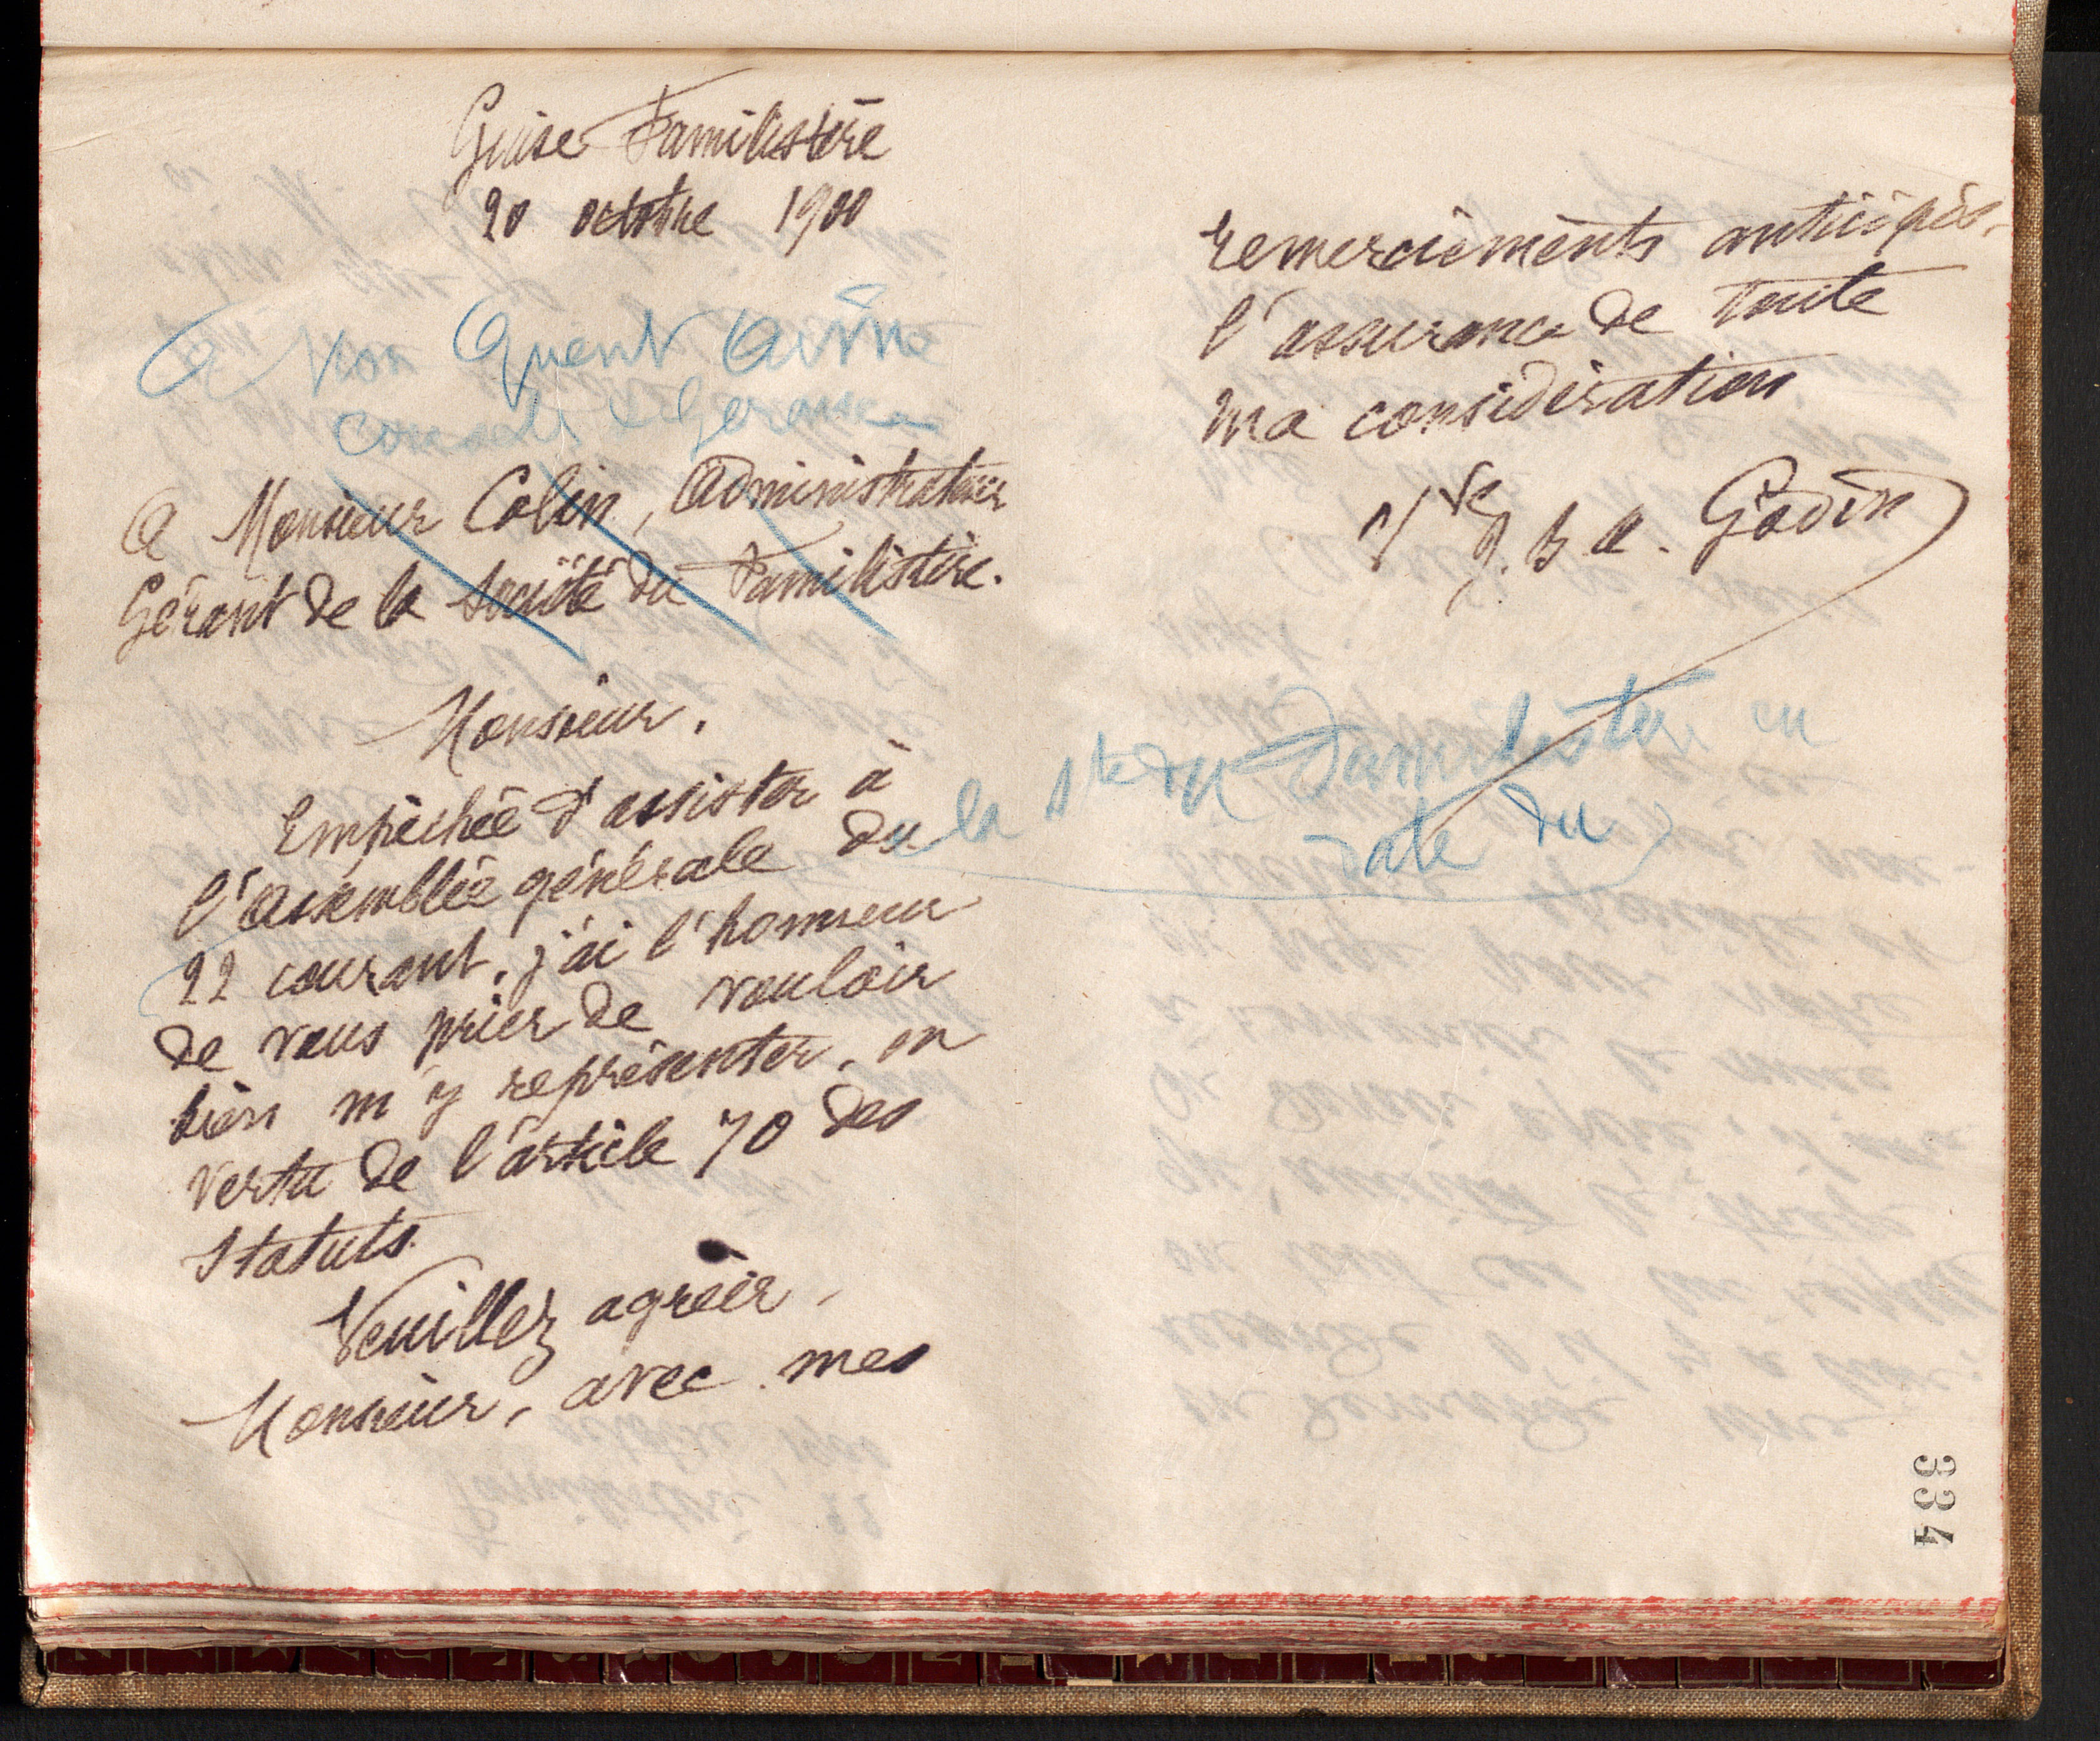 Guise Familistère
20 octobre 1900
A Mon Quent Aimé
conseil de Gérance
A Monsieur Colin, Administrateur
Gérant de la Société du Familistère.
Monsieur,
Empêchée d'assister à
l'assemblée générale du
22 courant, j'ai l'honneur
de vous prier de vouloir
bien m'y représenter, en
vertu de l'article 70 des
Statuts.
Veuillez agréer,
Monsieur, avec mes
remerciements anticipés,
l'assurance de toute
ma considération
Vve J. B. A. Godin
de la Sté du Familistère en
date du
334